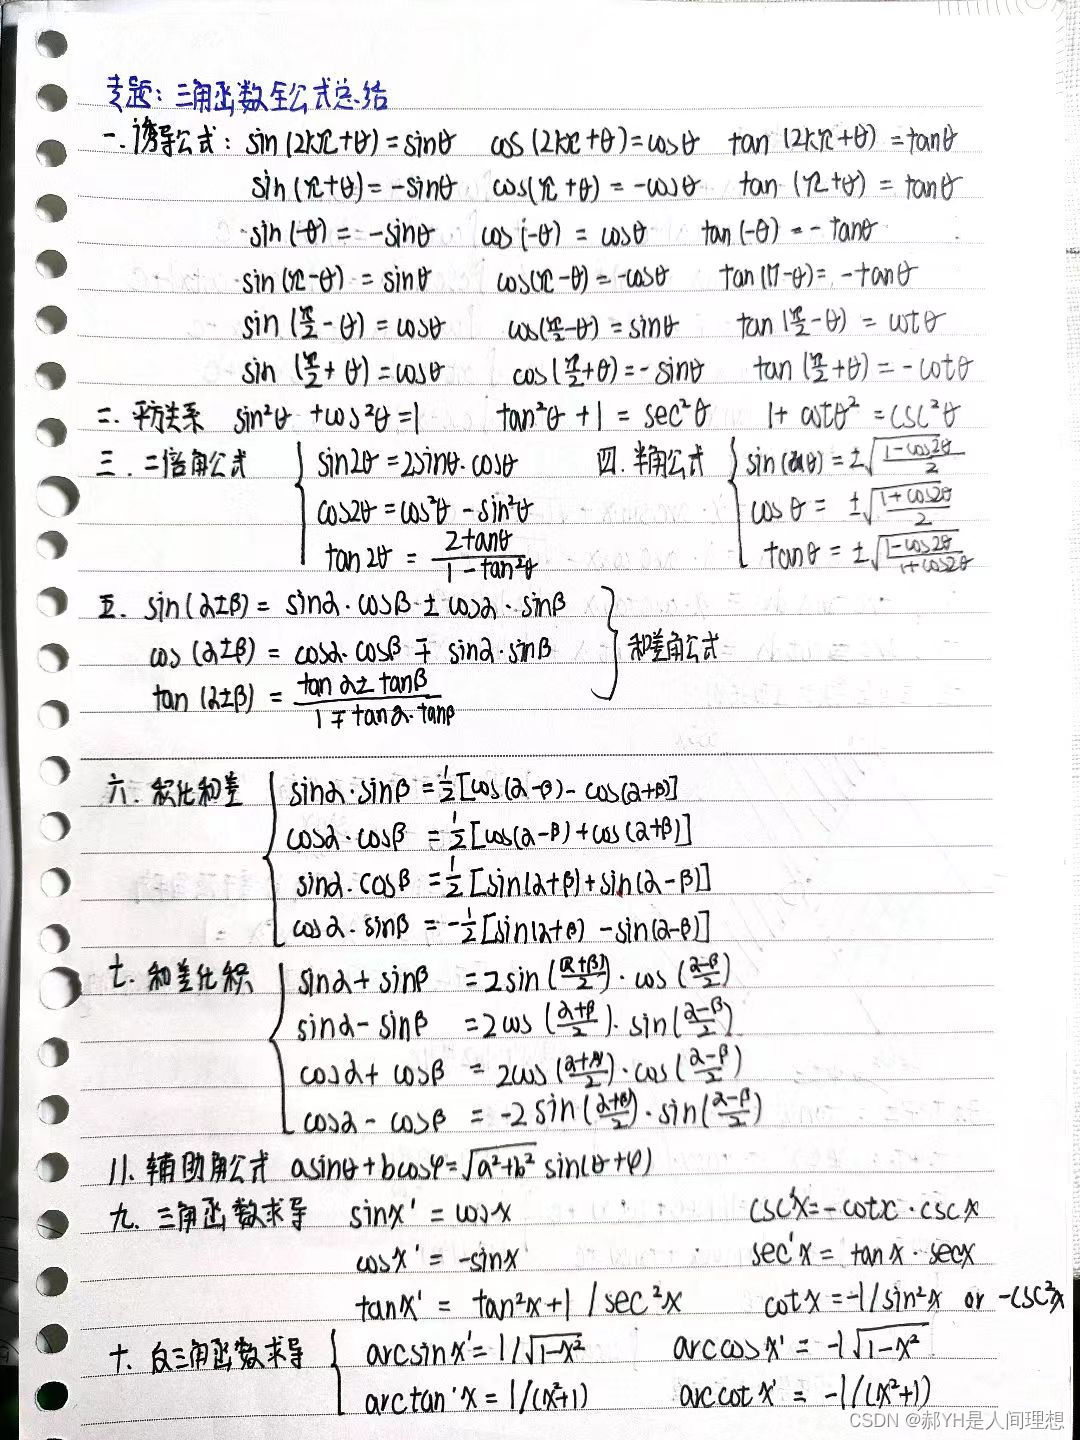 专题：三角函数全公式总结
一.诱导公式：sin(2kπ+θ)=sinθ cos(2kπ+θ)=cosθ tan(2kπ+θ)=tanθ
sin(π+θ)=-sinθ cos(π+θ)=-cosθ tan(π+θ)=tanθ
sin(-θ)=-sinθ cos(-θ)=cosθ tan(-θ)=-tanθ
sin(π-θ)=sinθ cos(π-θ)=-cosθ tan(π-θ)=-tanθ
sin(π/2-θ)=cosθ cos(π/2-θ)=sinθ tan(π/2-θ)=cotθ
sin(π/2+θ)=cosθ cos(π/2+θ)=-sinθ tan(π/2+θ)=-cotθ
二.平方关系 sin²θ+cos²θ=1 tan²θ+1=sec²θ 1+cotθ²=csc²θ
三.二倍角公式 sin2θ=2sinθ·cosθ
cos2θ=cos²θ-sin²θ
tan2θ=2tanθ/1-tan²θ
四.半角公式 sin(θ)=±√1-cos2θ/2
cosθ=±√1+cos2θ/2
tanθ=±√1-cos2θ/1+cos2θ
五.sin(α±β)=sinα·cosβ±cosα·sinβ
cos(α±β)=cosα·cosβ∓sinα·sinβ
tan(α±β)=tanα±tanβ/1∓tanα·tanβ
和差角公式
六.积化和差 sinα·sinβ=1/2[cos(α-β)-cos(α+β)]
cosα·cosβ=1/2[cos(α-β)+cos(α+β)]
sinα·cosβ=1/2[sin(α+β)+sin(α-β)]
cosα·sinβ=-1/2[sin(α+β)-sin(α-β)]
七.和差化积 sinα+sinβ=2sin(α+β/2)·cos(α-β/2)
sinα-sinβ=2cos(α+β/2)·sin(α-β/2)
cosα+cosβ=2cos(α+β/2)·cos(α-β/2)
cosα-cosβ=-2sin(α+β/2)·sin(α-β/2)
八.辅助角公式 asinθ+bcosφ=√a²+b² sin(θ+φ)
九.三角函数求导 sinx'=cosx csc'x=-cotx·cscx
cosx'=-sinx sec'x=tanx·secx
tanx'=tan²x+1/sec²x cotx=-1/sin²x or -csc²x
十.反三角函数求导 arcsinx'=1/√1-x² arccosx'=-1√1-x²
arctan'x=1/(x²+1) arccotx'=-1/(x²+1)
CSDN @郝YH是人间理想